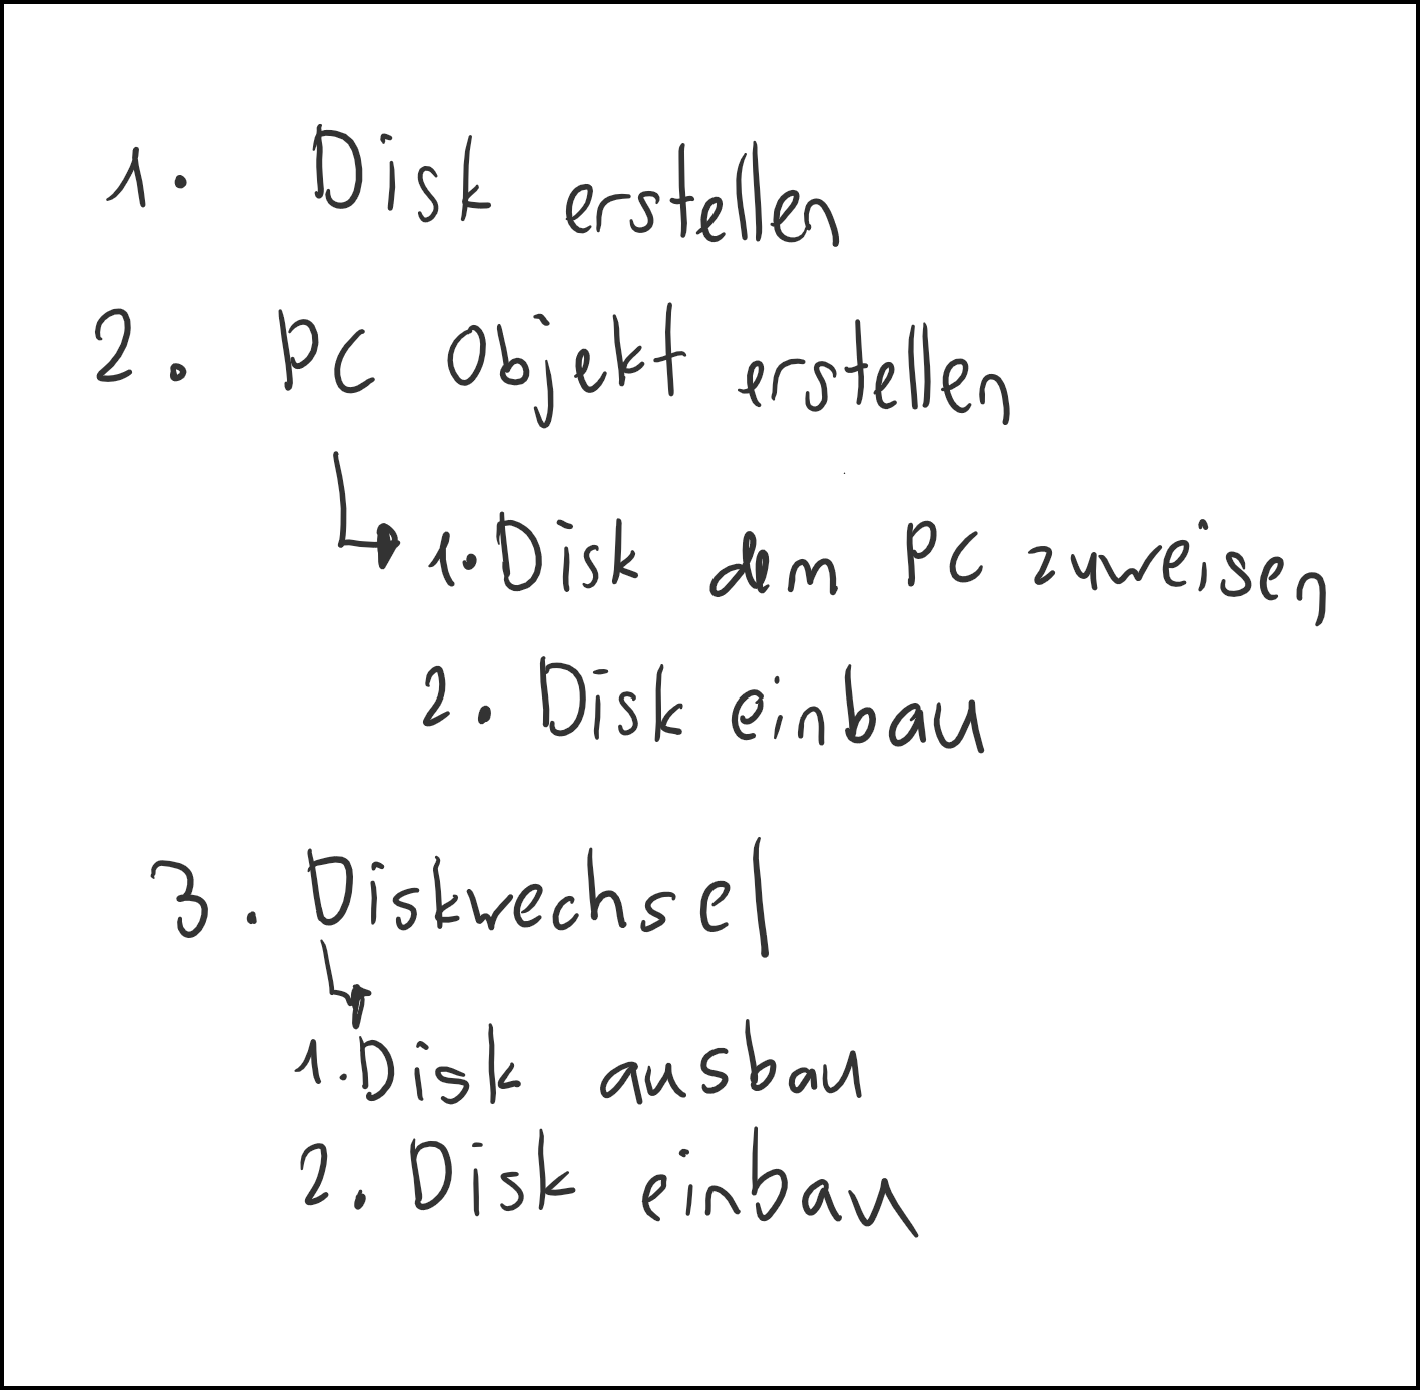 1. Disk erstellen
2. PC Objekt erstellen
1. Disk dem PC zuweisen
2. Disk einbau
3. Diskwechsel
1. Disk ausbau
2. Disk einbau